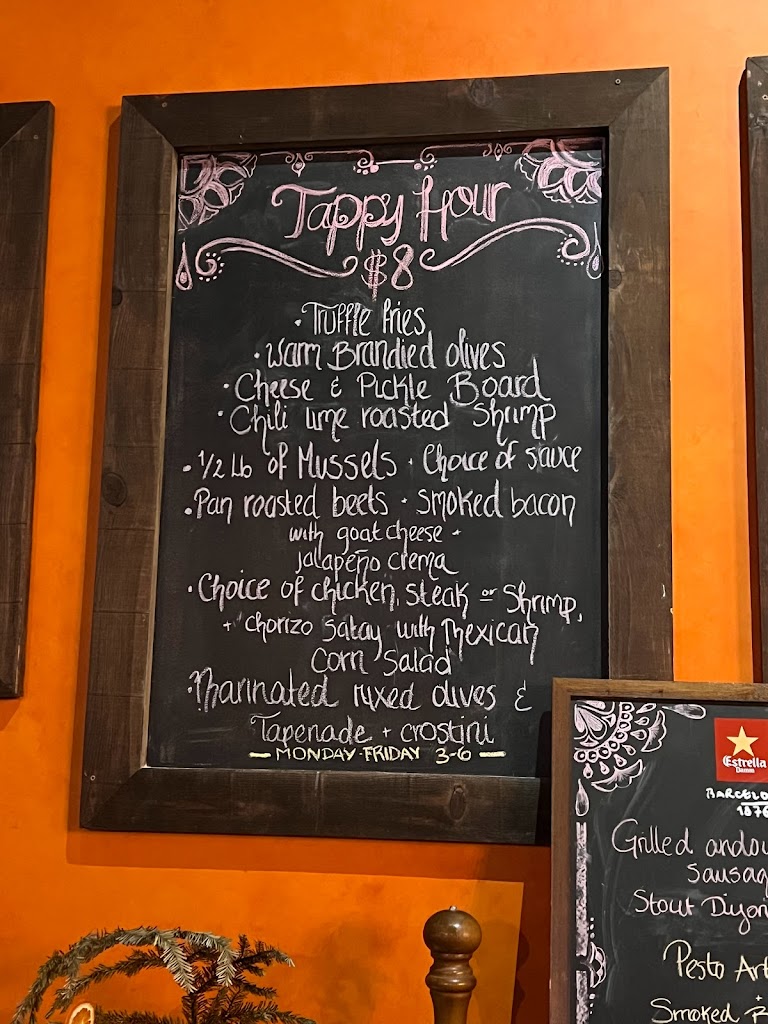 Tappy Hour
$8
• Truffle fries
• Warm Brandied olives
• Cheese & Pickle Board
• Chili lime roasted Shrimp
• 1/2 Lb of Mussels • Choice of sauce
• Pan roasted beets • smoked bacon
with goat cheese +
jalapeño crema
• Choice of chicken, steak or Shrimp,
+ chorizo satay with Mexican
Corn Salad
• Marinated mixed olives &
Tapenade + crostini
MONDAY-FRIDAY 3-6
Estrella
Damm
BARCELO
1876
Grilled andou
Sausag
Stout Dijon
Pesto Art
+
Smoked